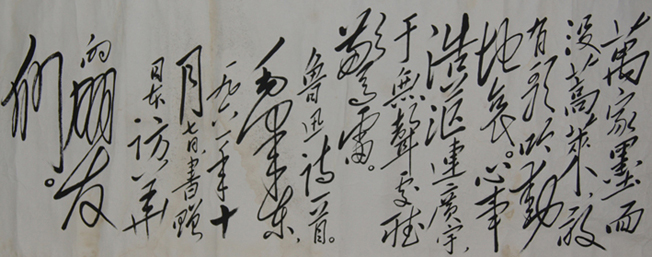 萬家墨面
没蒿萊,敢
有歌吟動
地哀。心事
浩茫連廣宇,
于無聲處聽
驚雷。
魯迅诗一首。
毛澤東
一九六一年十
月七日書贈
日本访華
的朋友
们。